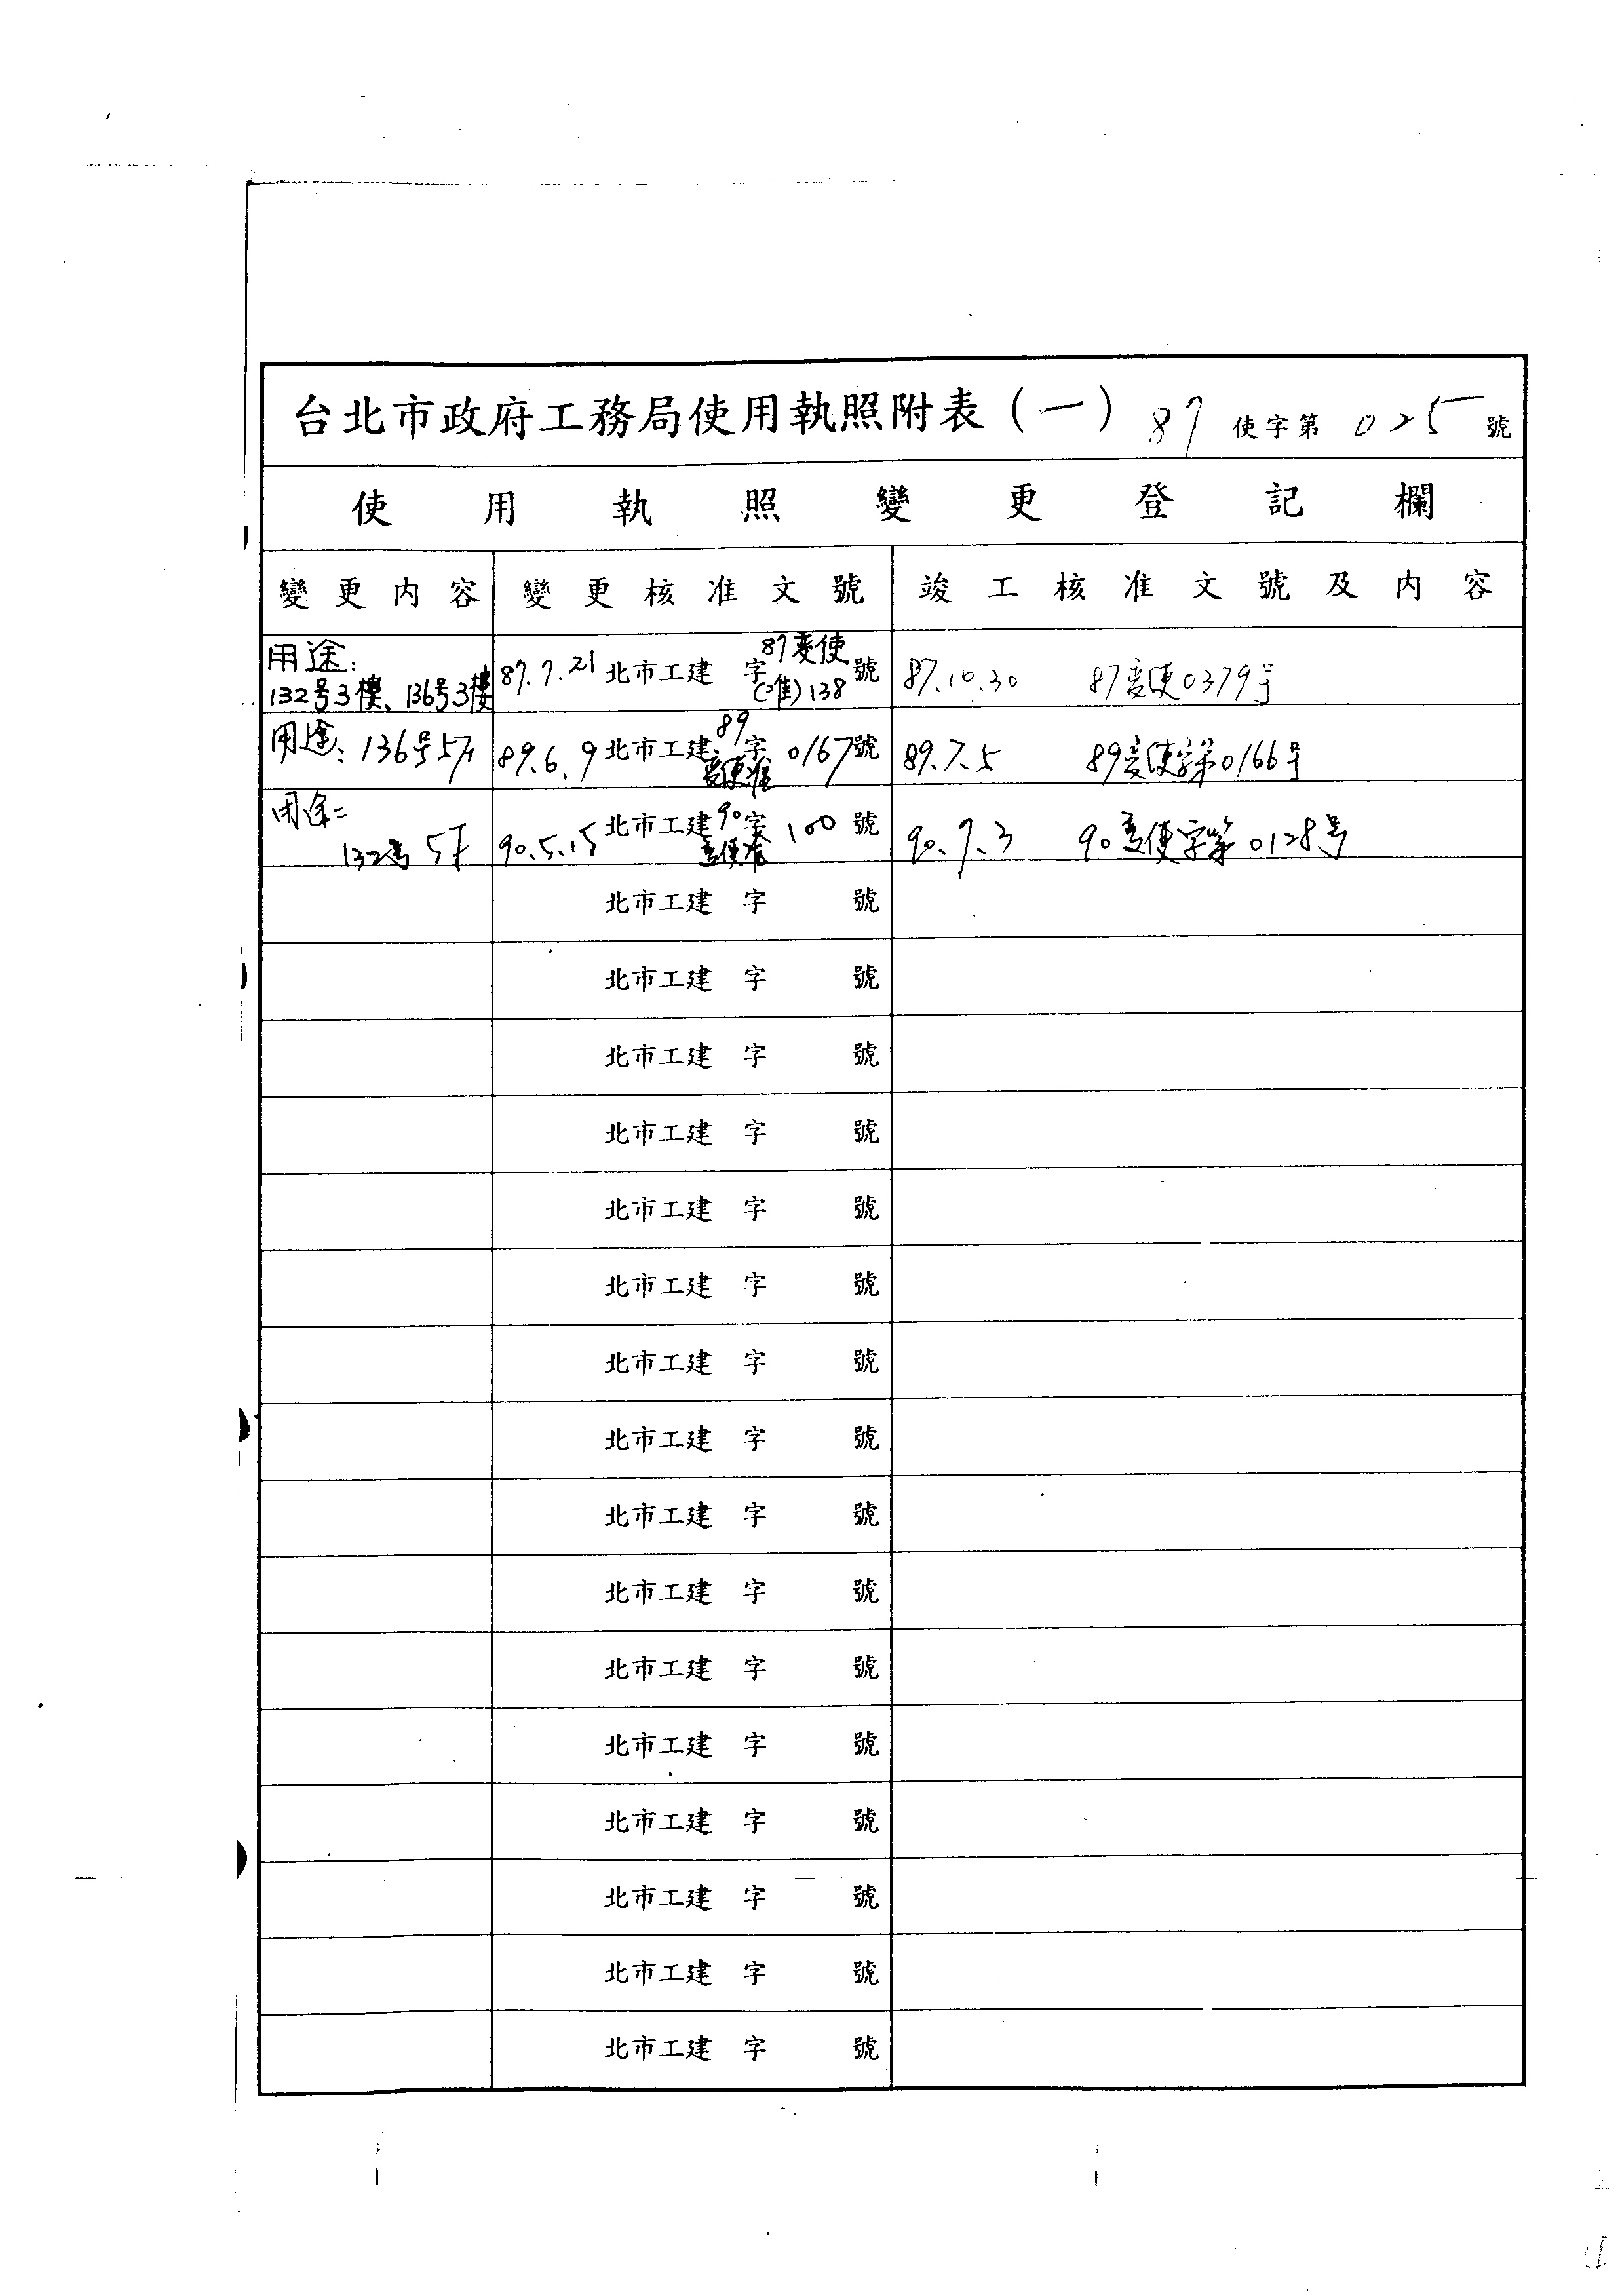 台北市政府工務局使用執照附表（一） 87 使字第 025 號
使用執照變更登記欄
變更內容 變更核准文號 竣工核准文號及內容
用途：
132号3樓、136号3樓 87.7.21 北市工建 字 87変使(准)138 號 87.10.30 87変使0379号
用途：136号5F 89.6.9 北市工建 89変使准 字 0167 號 89.7.5 89変使字第0166号
用途：
132号 5F 90.5.15 北市工建 90変使准 字 100 號 90.7.3 90変使字第0128号
北市工建 字 號
北市工建 字 號
北市工建 字 號
北市工建 字 號
北市工建 字 號
北市工建 字 號
北市工建 字 號
北市工建 字 號
北市工建 字 號
北市工建 字 號
北市工建 字 號
北市工建 字 號
北市工建 字 號
北市工建 字 號
北市工建 字 號
北市工建 字 號